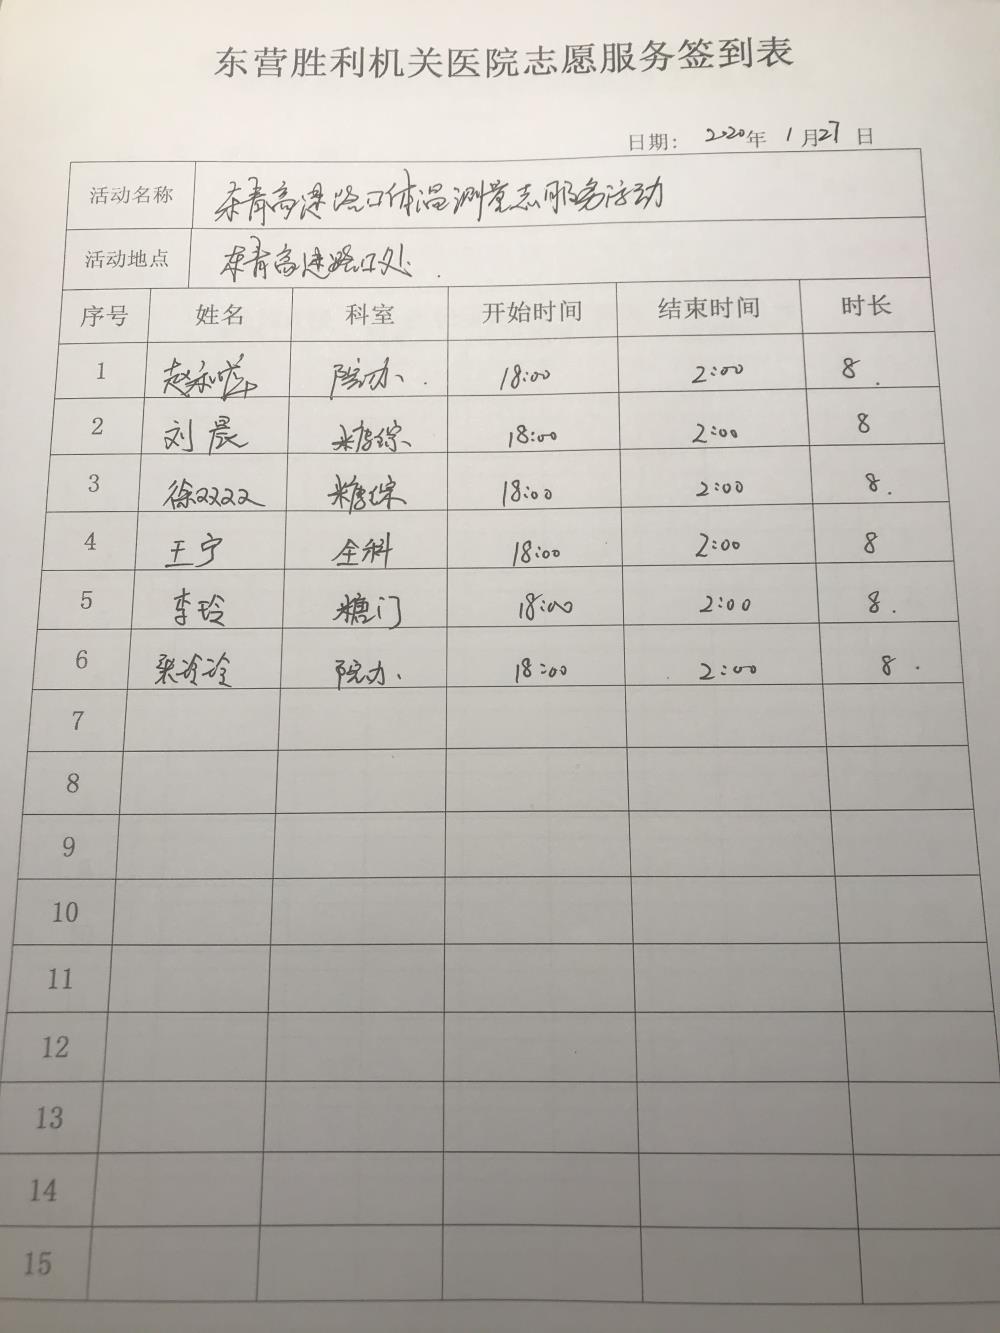 东营胜利机关医院志愿服务签到表
日期: 2020年 1月27日
活动名称 东青高速路口体温测量志服务活动
活动地点 东青高速路口处.
序号 姓名 科室 开始时间 结束时间 时长
1 院办. 18:00 2:00 8.
2 刘晨 糖综 18:00 2:00 8
3 徐双双 糖综 18:00 2:00 8.
4 王宁 全科 18:00 2:00 8
5 李玲 糖门 18:00 2:00 8.
6 梁冷冷 院办、 18:00 2:00 8.
7
8
9
10
11
12
13
14
15